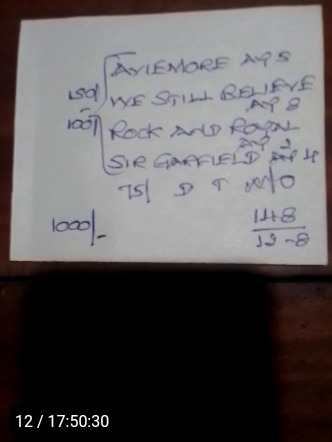 AVIEMORE AP 5
150/ WE STILL BELIEVE
AP 8
100/ ROCK AND ROYAL
AP 2
SIR GARFIELD AP 4
75/ D T W/O
1000/- 148
12-8
12 / 17:50:30